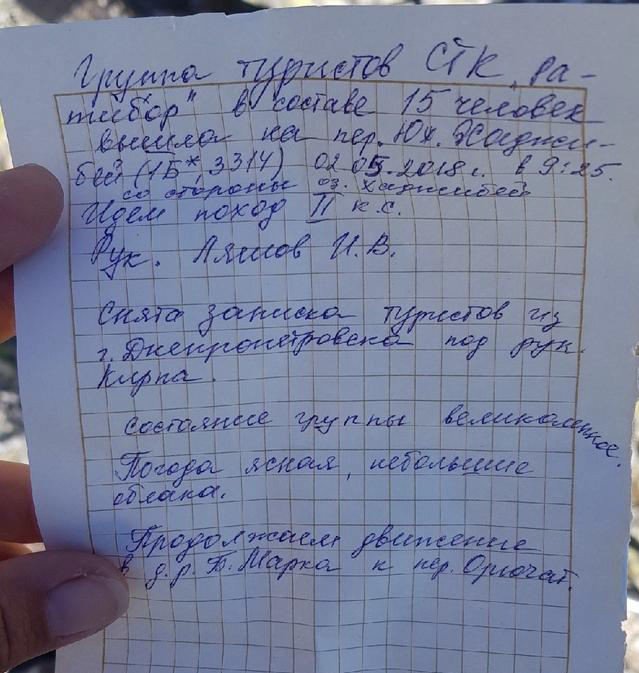 Группа туристов СТК „Ра-
тибор" в составе 15 человек
вышла на пер. Юж. Хаджи-
бей (1Б*, 3314) 02.05.2018 г. в 9:25.
со стороны оз. Хаджибей
Идём поход II к.с.
Рук. Ляшов И.В.
Снята записка туристов из
г. Днепропетровска под рук.
Карпа.
Состояние группы великолепное.
Погода ясная, небольшие
облака.
Продолжаем движение
в д.р. Б. Марка к пер. Орлючат.